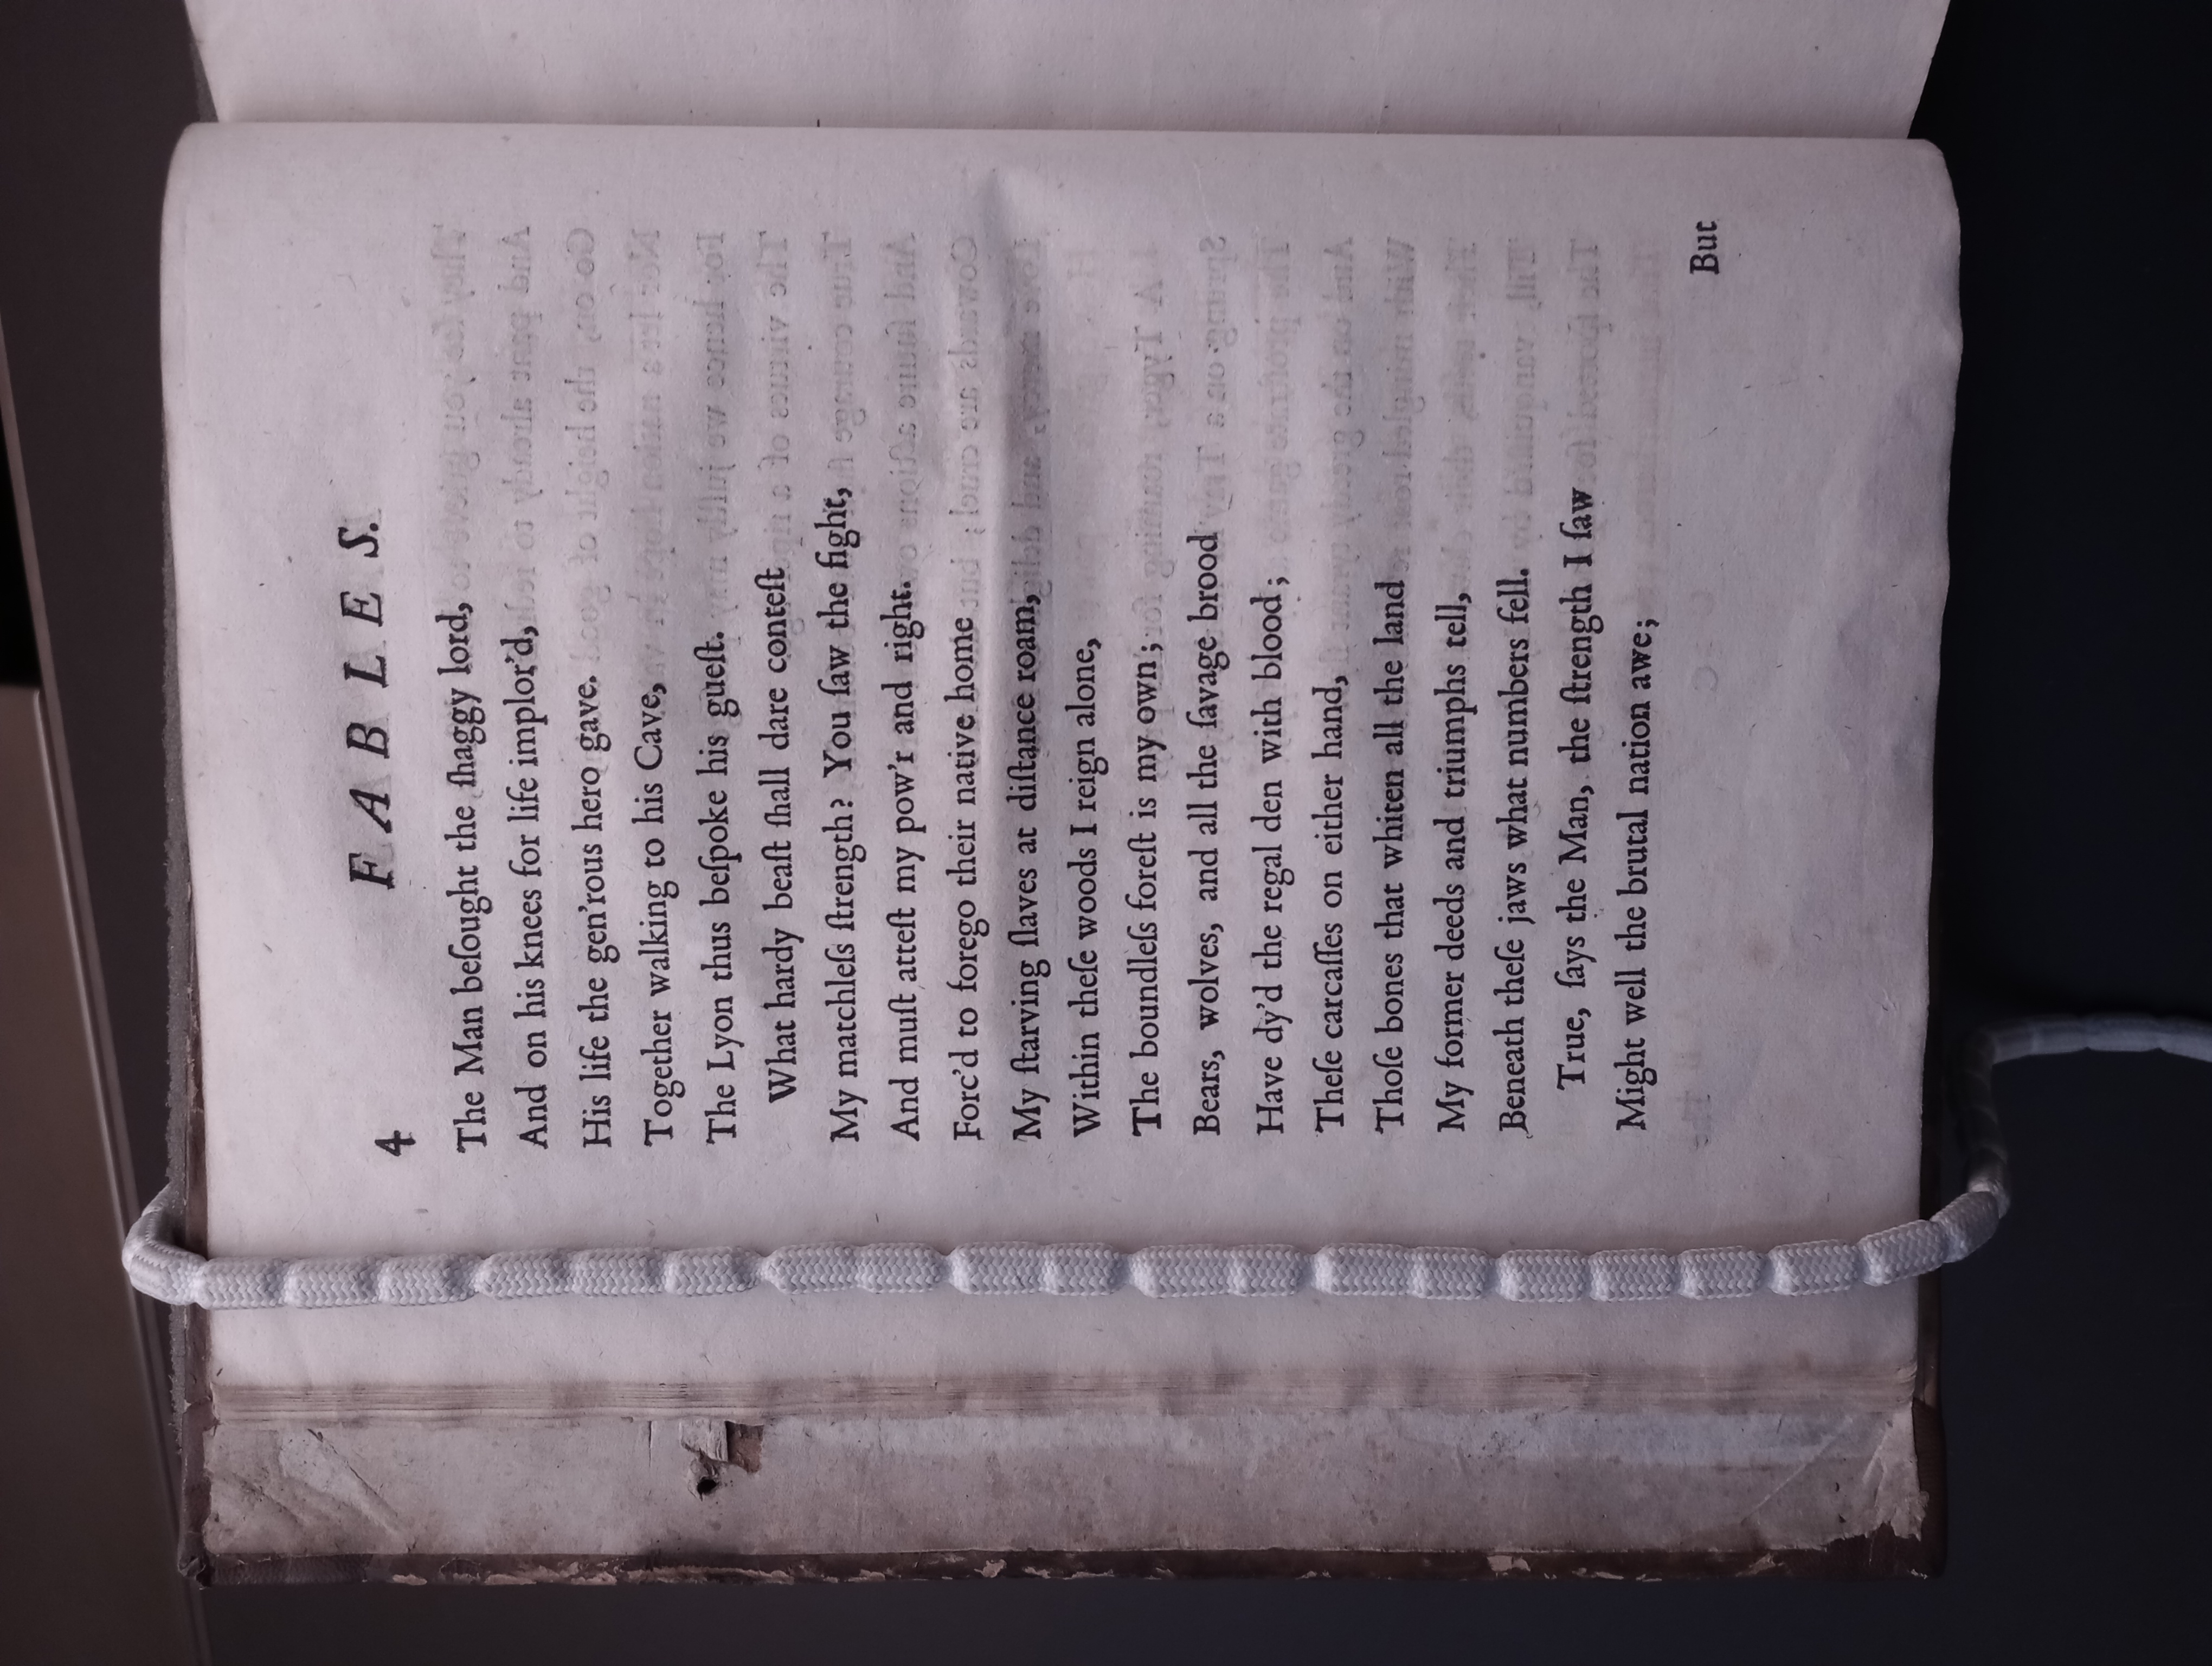 4
FABLES.
The Man beſought the ſhaggy lord,
And on his knees for life implor'd,
His life the gen'rous hero gave.
Together walking to his Cave,
The Lyon thus beſpoke his gueſt.
What hardy beaſt ſhall dare conteſt
My matchleſs ſtrength? You ſaw the fight,
And muſt atteſt my pow'r and right.
Forc'd to forego their native home
My ſtarving ſlaves at diſtance roam,
Within theſe woods I reign alone,
The boundleſs foreſt is my own;
Bears, wolves, and all the ſavage brood
Have dy'd the regal den with blood;
Theſe carcaſſes on either hand,
Thoſe bones that whiten all the land
My former deeds and triumphs tell,
Beneath theſe jaws what numbers fell.
True, ſays the Man, the ſtrength I ſaw
Might well the brutal nation awe;
But